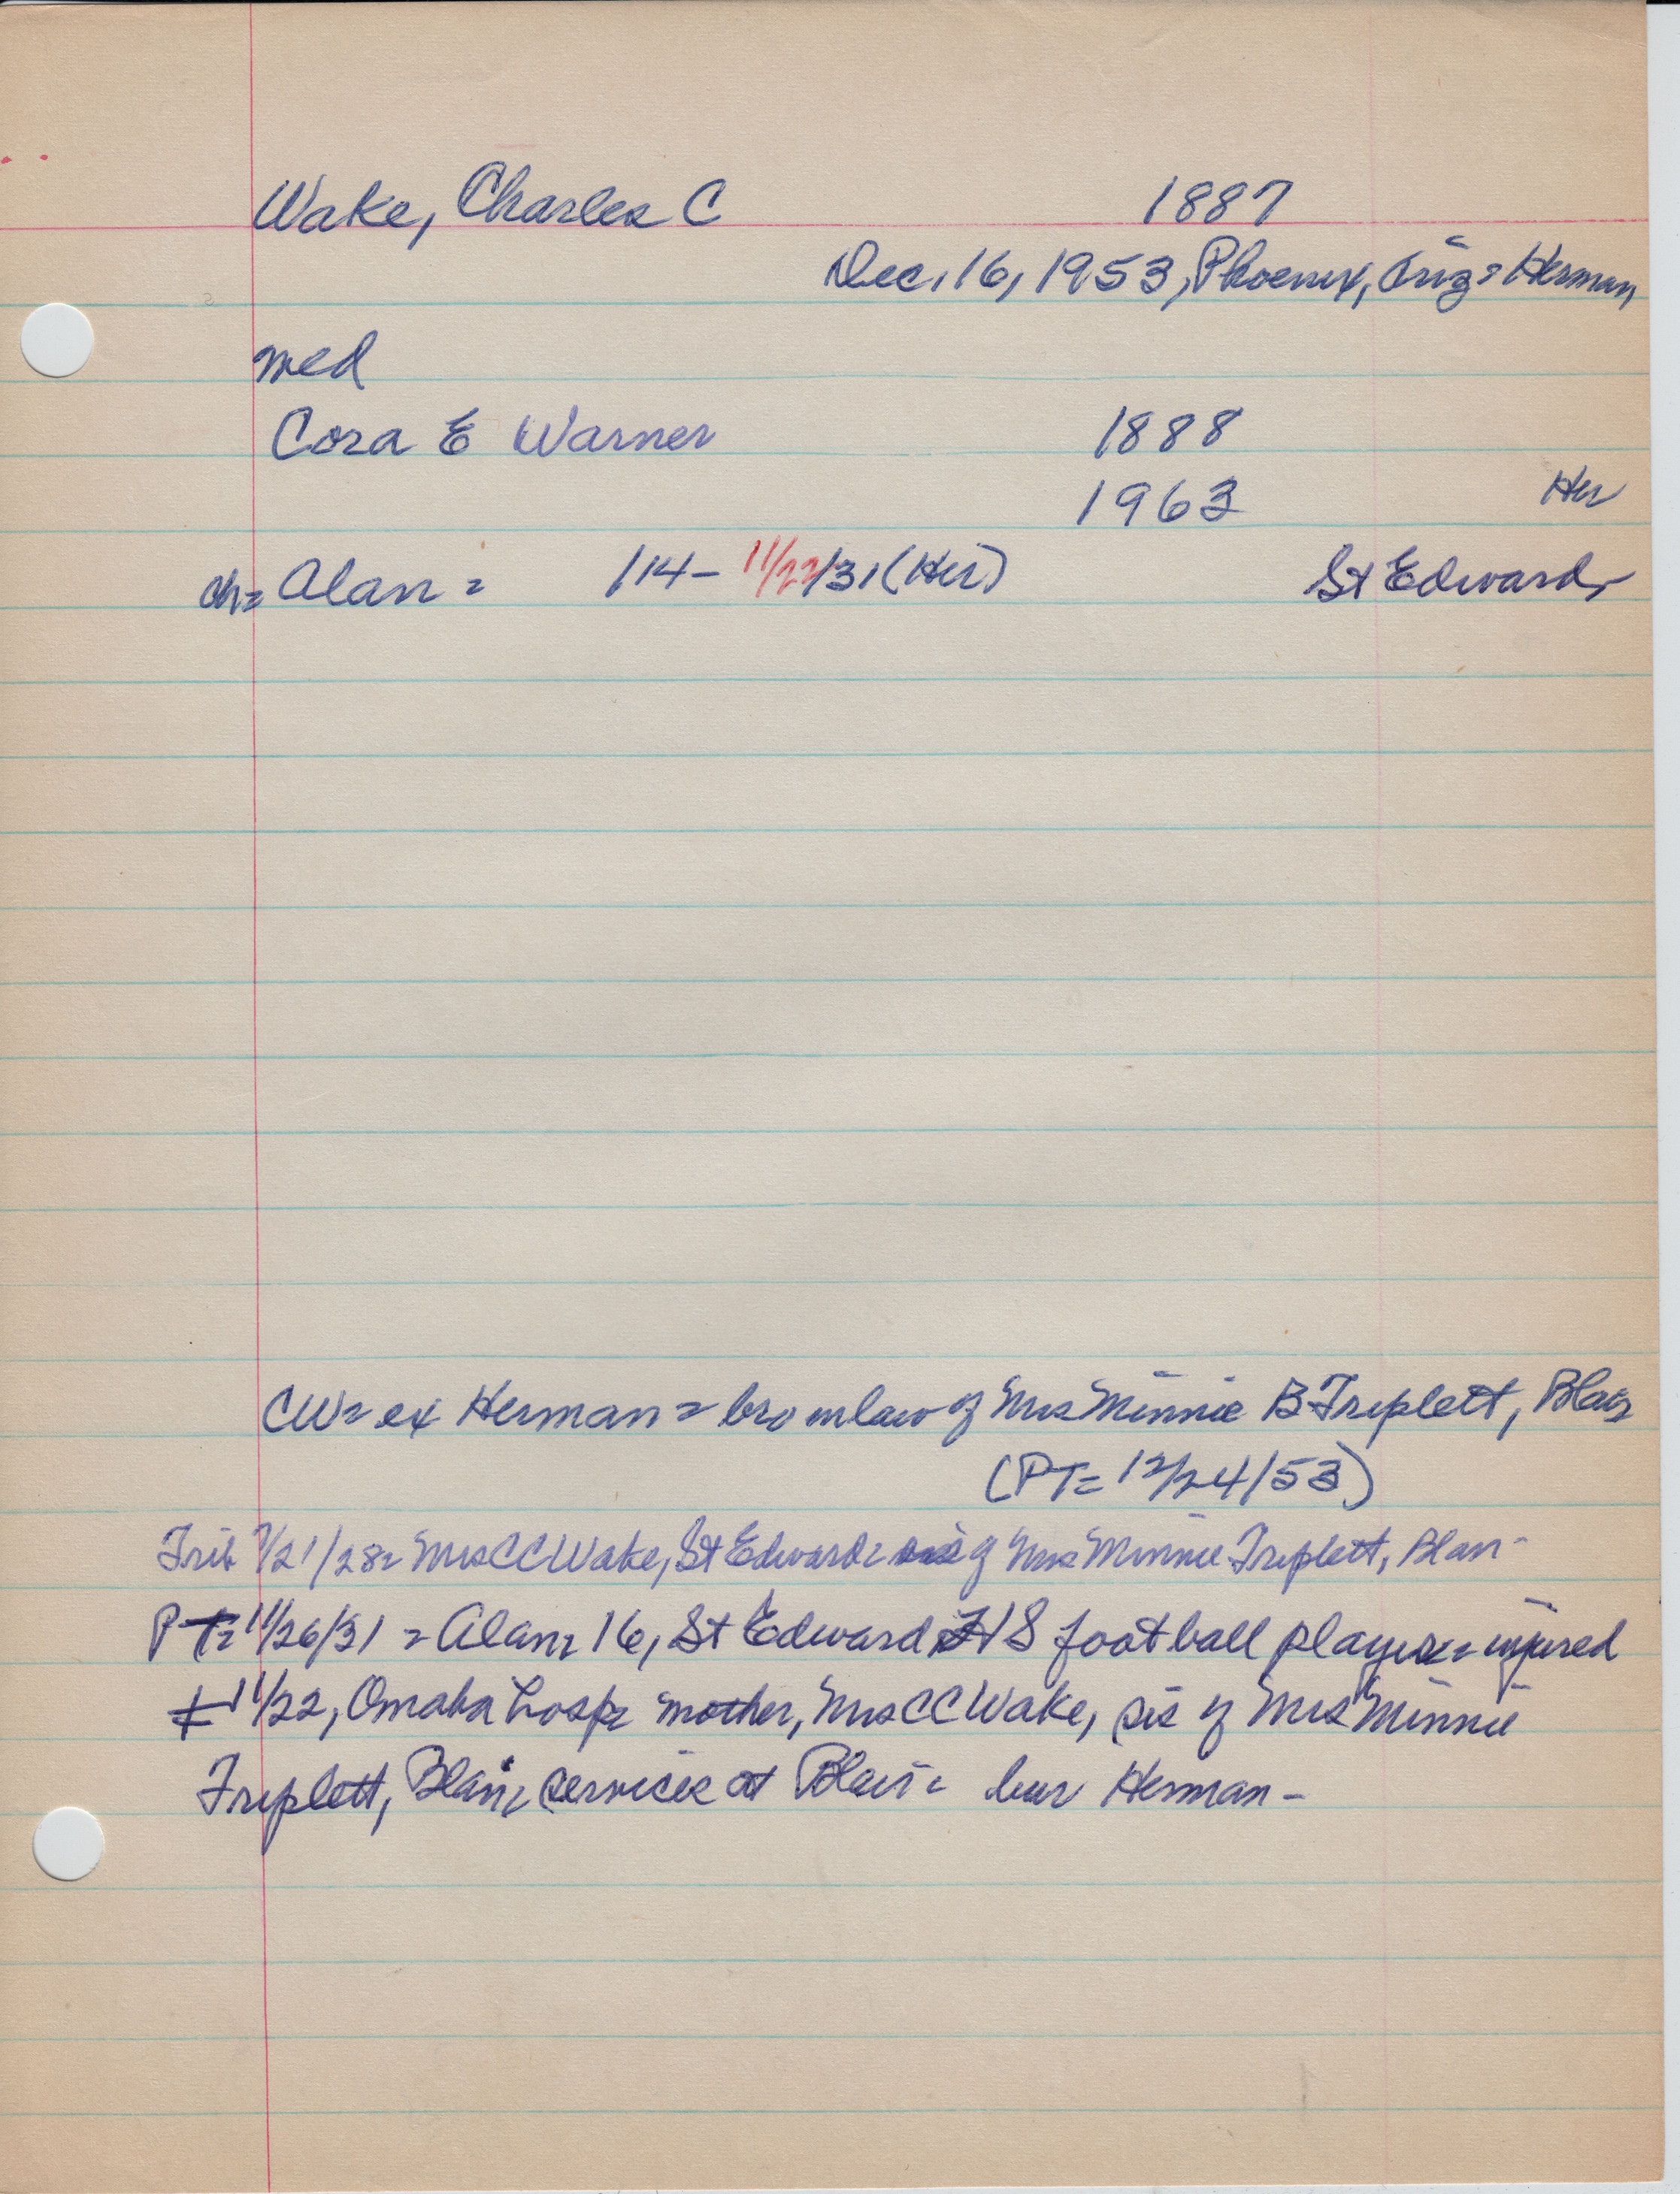 Wake, Charles C 1887
Dec. 16, 1953, Phoenix, Ariz = Herman
med
Cora E Warner 1888
1963 Her
ch = Alan = /14 - 11/22/31 (Her) St Edward
CW = ex Herman = bro inlaw of Mrs Minnie B Triplett, Blair
(PT = 12/24/53)
Trib 7/21/28 = Mrs CC Wake, St Edward = sis of Mrs Minnie Triplett, Blair -
PT = 11/26/31 = Alan = 16, St Edward HS football player = injured
11/22, Omaha hosp = mother, Mrs CC Wake, sis of Mrs Minnie
Triplett, Blair, service at Blair = bur Herman -